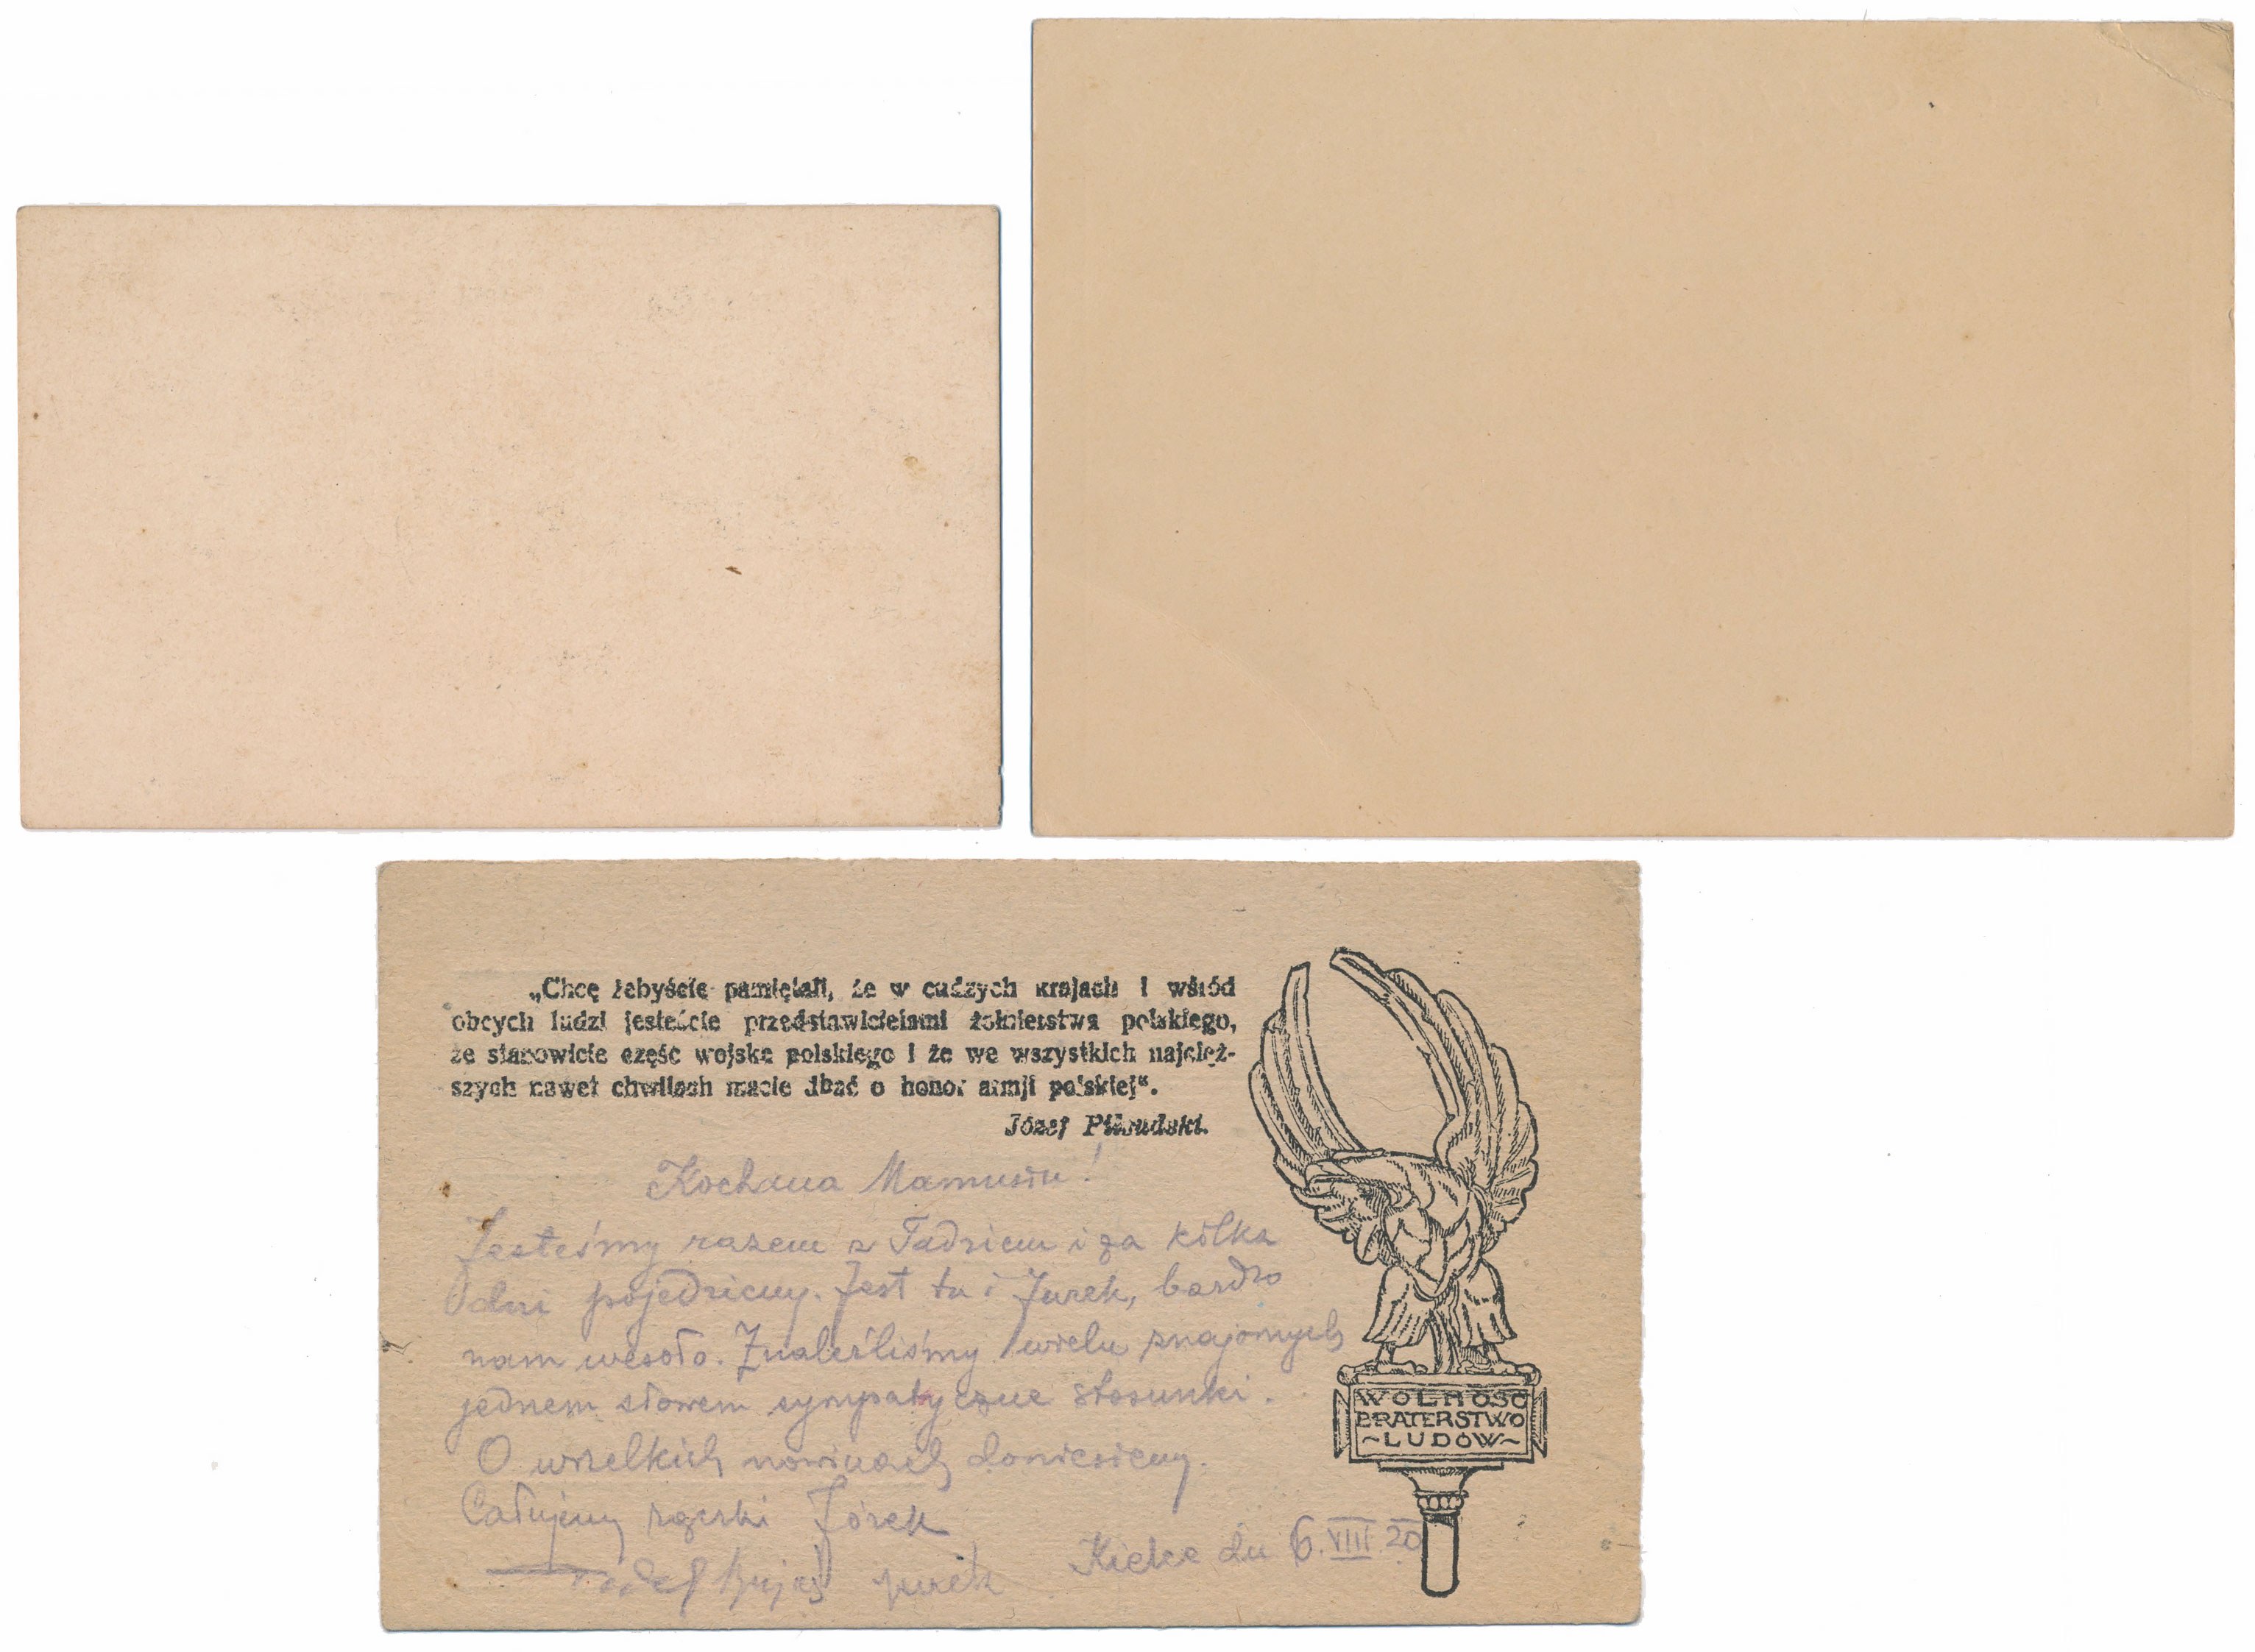 „Chcę żebyście pamiętali, że w cudzych krajach i wśród
obcych ludzi jesteście przedstawicielami żołnierstwa polskiego,
że stanowicie część wojska polskiego i że we wszystkich najcięż-
szych nawet chwilach macie dbać o honor armji polskiej“.
Józef Piłsudski.
Kochana Mamusiu!
Jesteśmy razem z Tadziem i za kilka
dni pojedziemy. Jest tu i Jurek, bardzo
nam wesoło. Znaleźliśmy wielu znajomych
jednem słowem sympatyczne stosunki.
O wszelkich nowinach doniesiemy.
Całujemy rączki Józek
Jurek
Kielce dn 6.VIII.20
WOLNOŚĆ
BRATERSTWO
~LUDÓW~